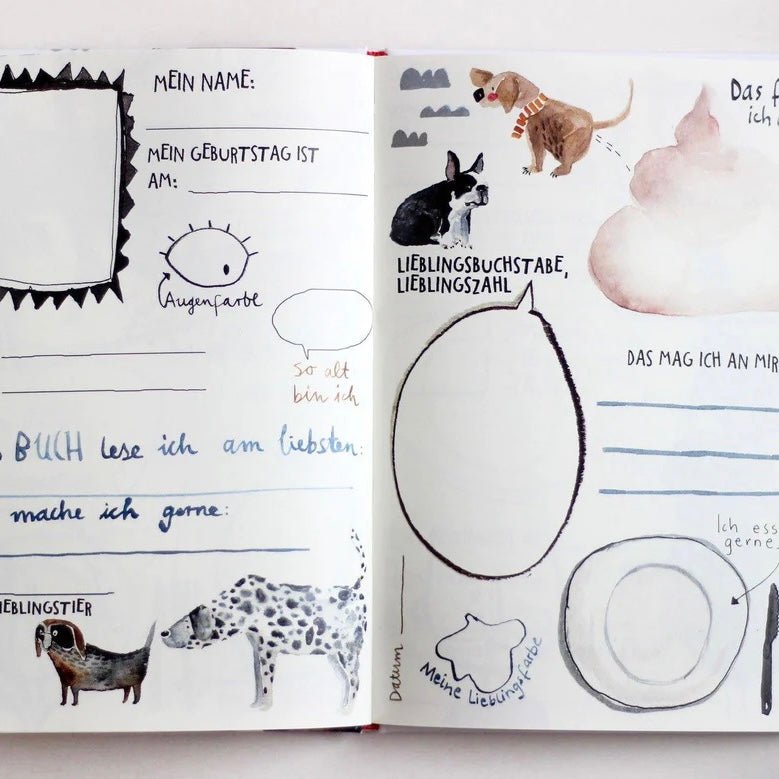 MEIN NAME:
MEIN GEBURTSTAG IST
AM:
Augenfarbe
so alt
bin ich
BUCH lese ich am liebsten:
mache ich gerne:
IEBLINGSTIER
Das f
ich
LIEBLINGSBUCHSTABE,
LIEBLINGSZAHL
DAS MAG ICH AN MIR
Ich ess
gerne
Datum
Meine Lieblingsfarbe